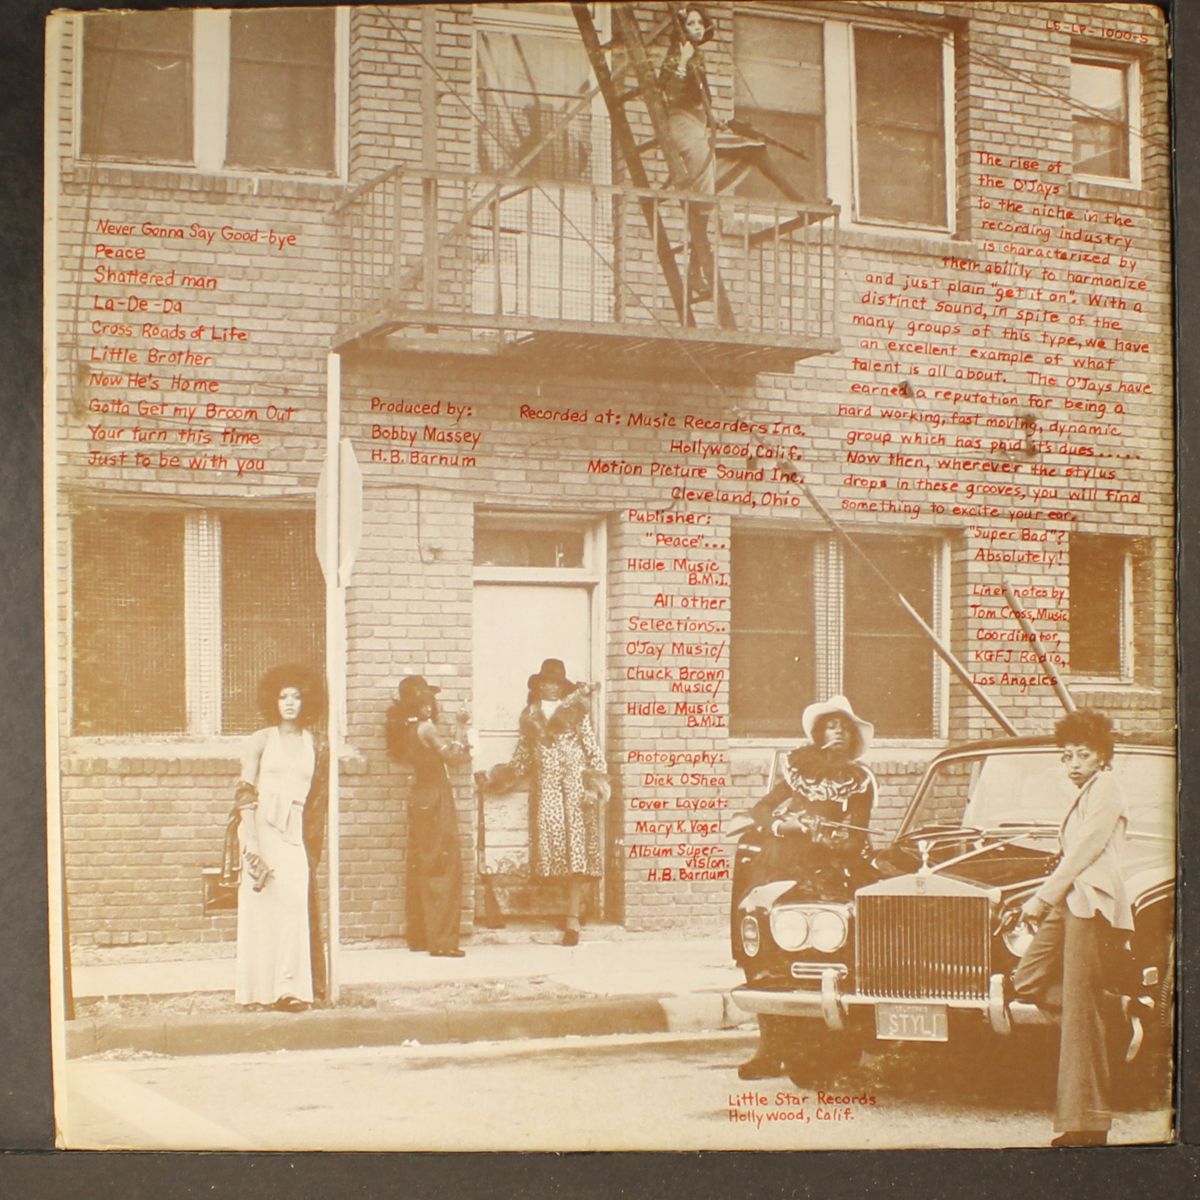 LS-LP-1000-S
Never Gonna Say Good-bye
Peace
Shattered man
La-De-Da
Cross Roads of Life
Little Brother
Now He's Home
Gotta Get my Broom Out
Your turn this time
Just to be with you
Produced by:
Bobby Massey
H.B. Barnum
Recorded at: Music Recorders Inc.
Hollywood, Calif.
Motion Picture Sound Inc.
Cleveland, Ohio
Publisher:
"Peace"...
Hidle Music
B.M.I.
All other
Selections..
O'Jay Music/
Chuck Brown
Music/
Hidle Music
B.M.I.
Photography:
Dick O'Shea
Cover Layout:
Mary K. Vogel
Album Super-
vision:
H.B. Barnum
The rise of
the O'Jays
to the niche in the
recording industry
is characterized by
their ability to harmonize
and just plain "get it on". With a
distinct sound, in spite of the
many groups of this type, we have
an excellent example of what
talent is all about. The O'Jays have
earned a reputation for being a
hard working, fast moving, dynamic
group which has paid it's dues.....
Now then, wherever the stylus
drops in these grooves, you will find
something to excite your ear.
"Super Bad"?
Absolutely!
Liner notes by
Tom Cross, Music
Coordinator,
KGFJ Radio,
Los Angeles
Little Star Records
Hollywood, Calif.